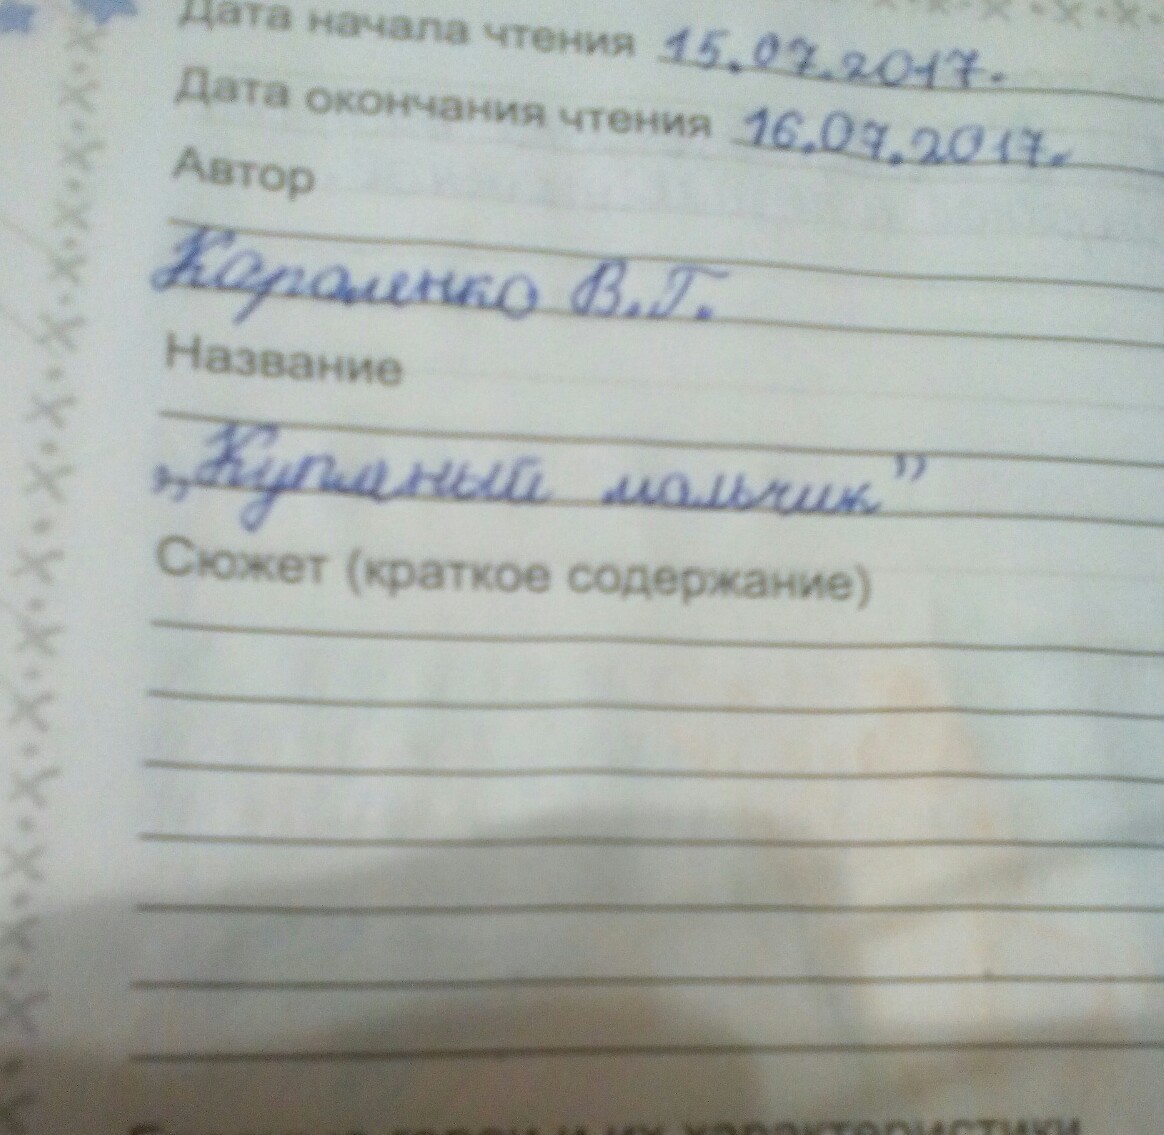 Дата начала чтения 15.07.2017.
Дата окончания чтения 16.07.2017.
Автор
Короленко В.Г.
Название
„Купленый мальчик”
Сюжет (краткое содержание)
герои и их характеристики